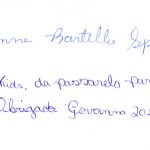 nne Bartelle Ep
Kids, da passarela par
Obrigada Giovanna 20